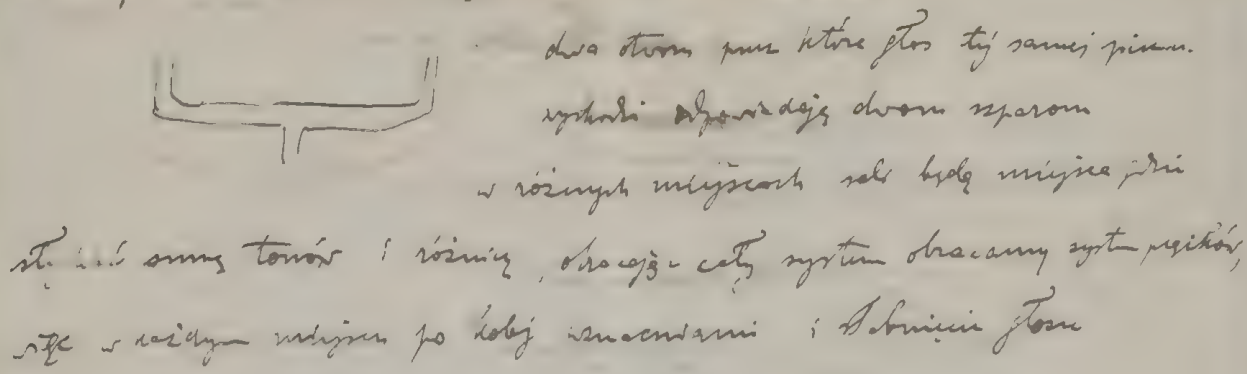 dwa otwory przez które głos tej samej piszcz.
wychodzi odpowiadają dwom szparom
w różnych miejscach sali będą miejsca gdzie
słychać sumę tonów i różnicę, obracając cały system obracamy system prążków,
więc w każdym miejscu po kolej wzmacnianie i słabnięcie głosu